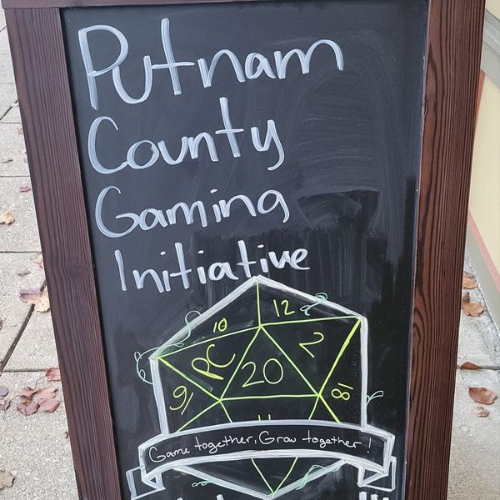 Putnam
County
Gaming
Initiative
12
10
PC
2
20
16
18
Game together, Grow together!